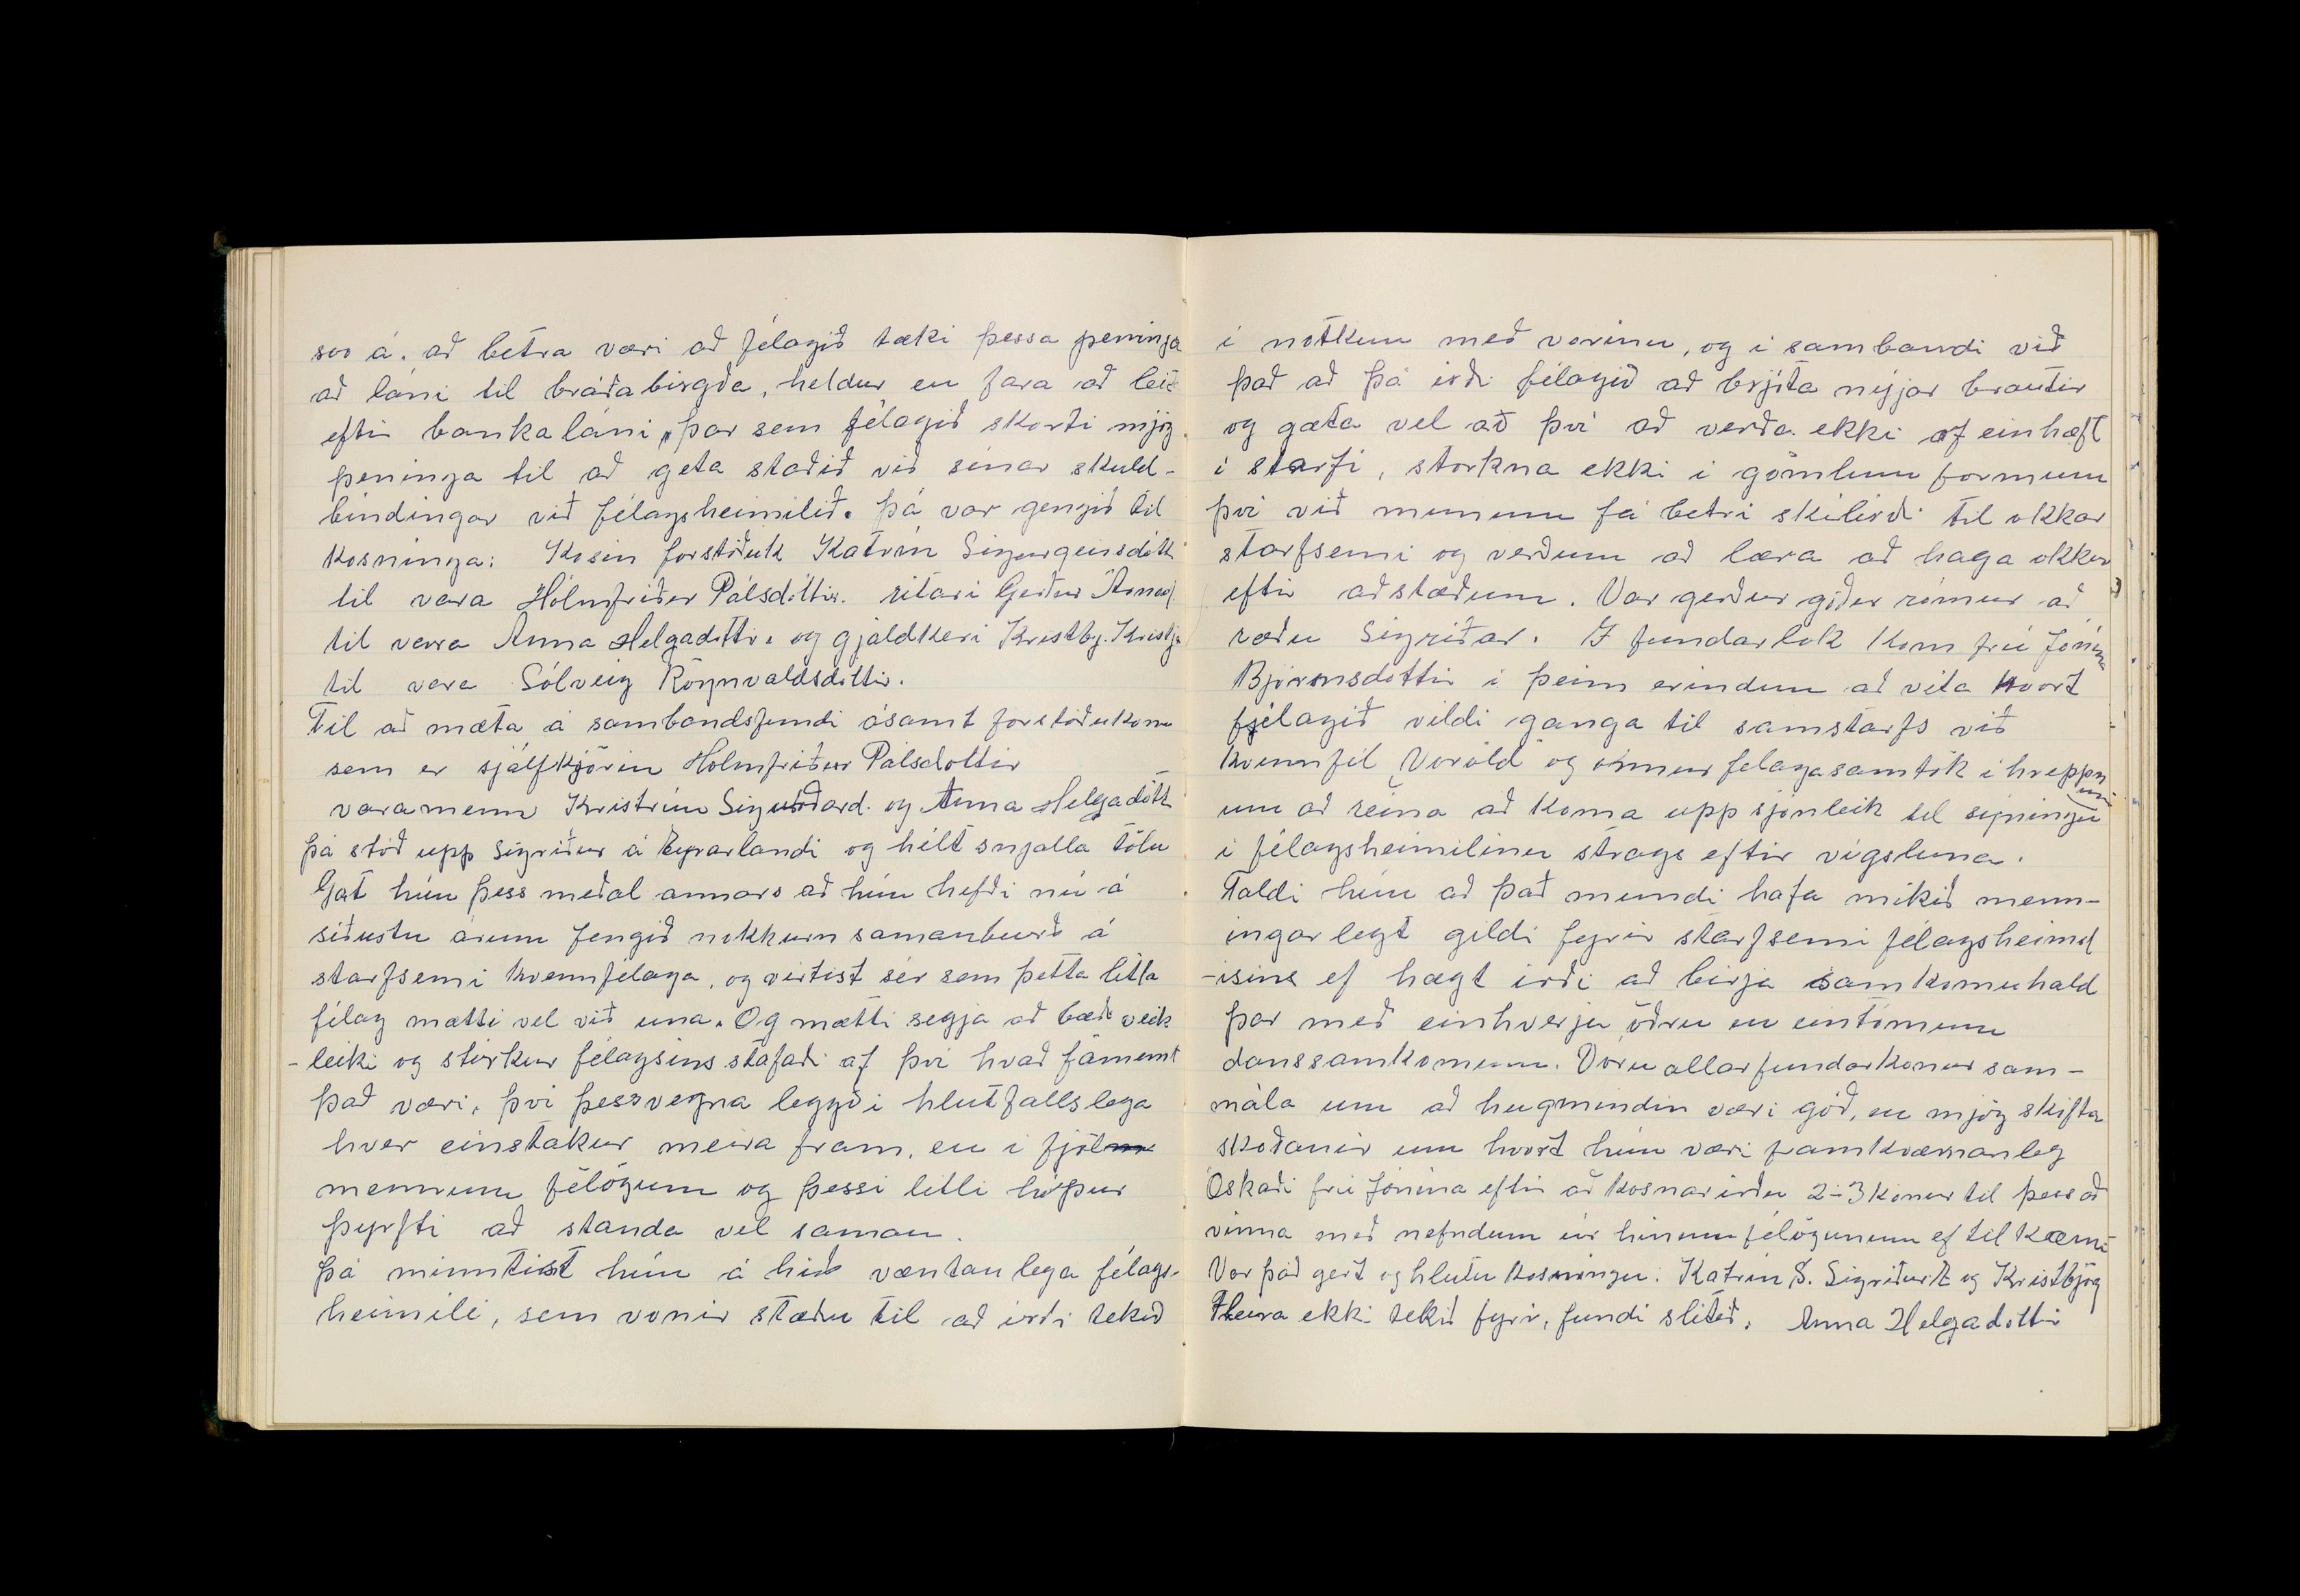 svo á. að betra væri að félagið tæki þessa peninga
að láni til bráðabirgða, heldur en fara að leit
eftir bankaláni, þar sem félagið skorti mjög
peninga til að geta staðið við sínar skuld-
bindingar við félagsheimilið. Þá var gengið til
kosninga: Kosin forstöðuk Katrín Sigurgeirsdótt
til vara Hólmfríður Pálsdóttir. ritari Gerður
til vara Anna Helgadóttir. og gjaldkeri Kristbj. Kristj
til vara Sólveig Rögnvaldsdóttir.
Til að mæta á sambandsfundi ásamt forstöðukonu
sem er sjálfkjörin Hólmfríður Pálsdóttir
varamenn Kristrún Sigurðard. og Anna Helgadótt
Þá stóð upp Sigríður á Eyrarlandi og hélt snjalla tölu
Gat hún þess meðal annars að hún hefði nú á
síðustu árum fengið nokkurn samanburð á
starfsemi kvennfélaga, og virtist sér sem þetta litla
félag mætti vel við una. Og mætti segja að bæði veik
-leiki og stirkur félagsins stafaði af því hvað fámennt
það væri, því þessvegna leggði hlutfallslega
hver einstakur meira fram, en í fjöl
mennum félögum og þessi litli hópur
þyrfti að standa vel saman.
Þá minntist hún á hið væntanlega félags-
heimili, sem vonir stæðu til að irði tekið
í notkun með vorinu, og í sambandi við
það að þá irði félagið að brjóta nýjar brautir
og gæta vel að því að verða ekki of einhæft
í starfi, storkna ekki í gömlum formum
því við munum fá betri skilirði til okkar
starfsemi og verðum að læra að haga okkur
eftir aðstæðum. Var gerður góður rómur að
ræðu Sigríðar. Í fundarlok kom frú Jónína
Björnsdóttir í þeim erindum að vita hvort
félagið vildi ganga til samstarfs við
kvennfél Voröld og önnur félagasamtök í hreppn
um
um að reina að koma upp sjónleik til sýningu
í félagsheimilinu strags eftir vígsluna.
Taldi hún að það mundi hafa mikið menn-
ingarlegt gildi fyrir starfsemi félagsheimil
-isins ef hægt irði að birja samkomuhald
þar með einhverju öðru en eintómum
danssamkomum. Voru allar fundarkonur sam-
mála um að hugmindin væri góð, en mjög skifta
skoðanir um hvort hún væri framkvæmanleg
Óskaði frú Jónína eftir að kosnar irðu 2-3 konur til þess að
vinna með nefndum úr hinum félögunum ef til kæmi
Var það gert og hlutu kosningu. Katrín S. Sigríður og Kristbjög
Fleira ekki tekið fyrir, fundi slitið. Anna Helgadóttir